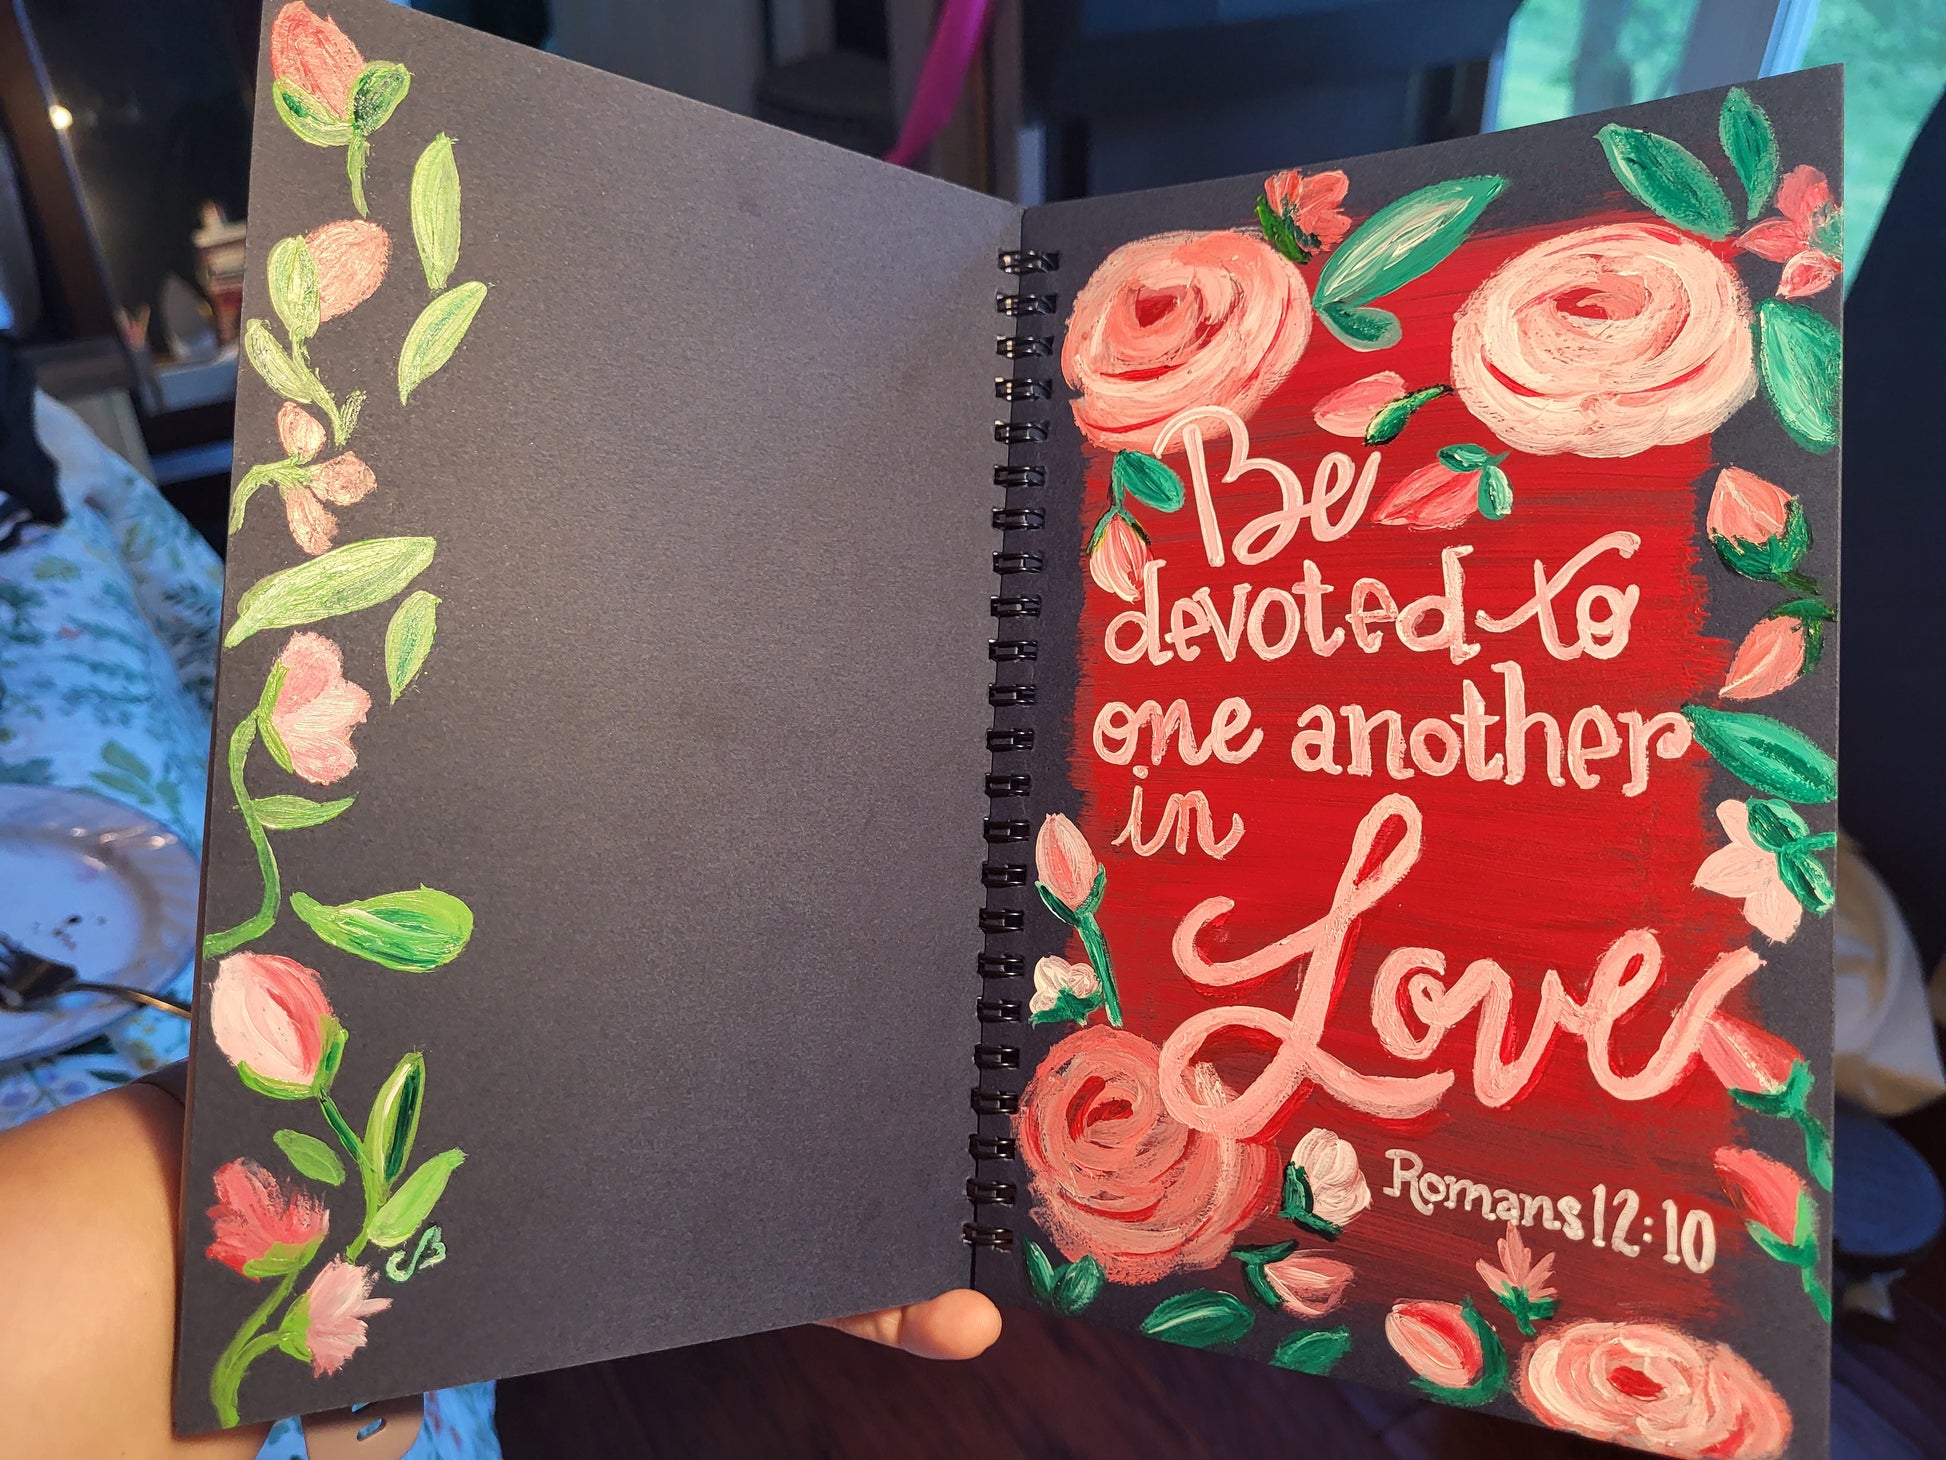 Be
devoted to
one another
in
Love
Romans 12:10